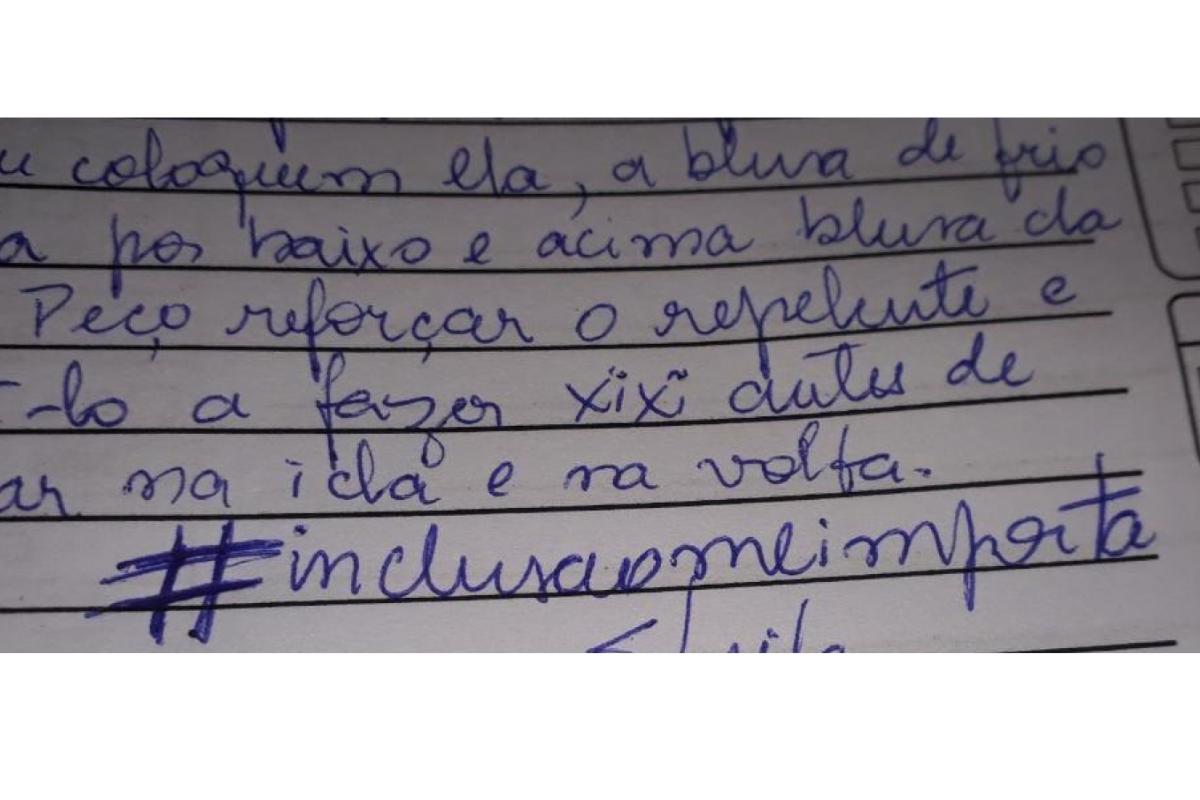 u coloquem ela, a blusa de frio
a por baixo e acima blusa da
Peço reforçar o repelente e
-lo a fazer xixi antes de
ar na ida e na volta.
#inclusaomeimporta